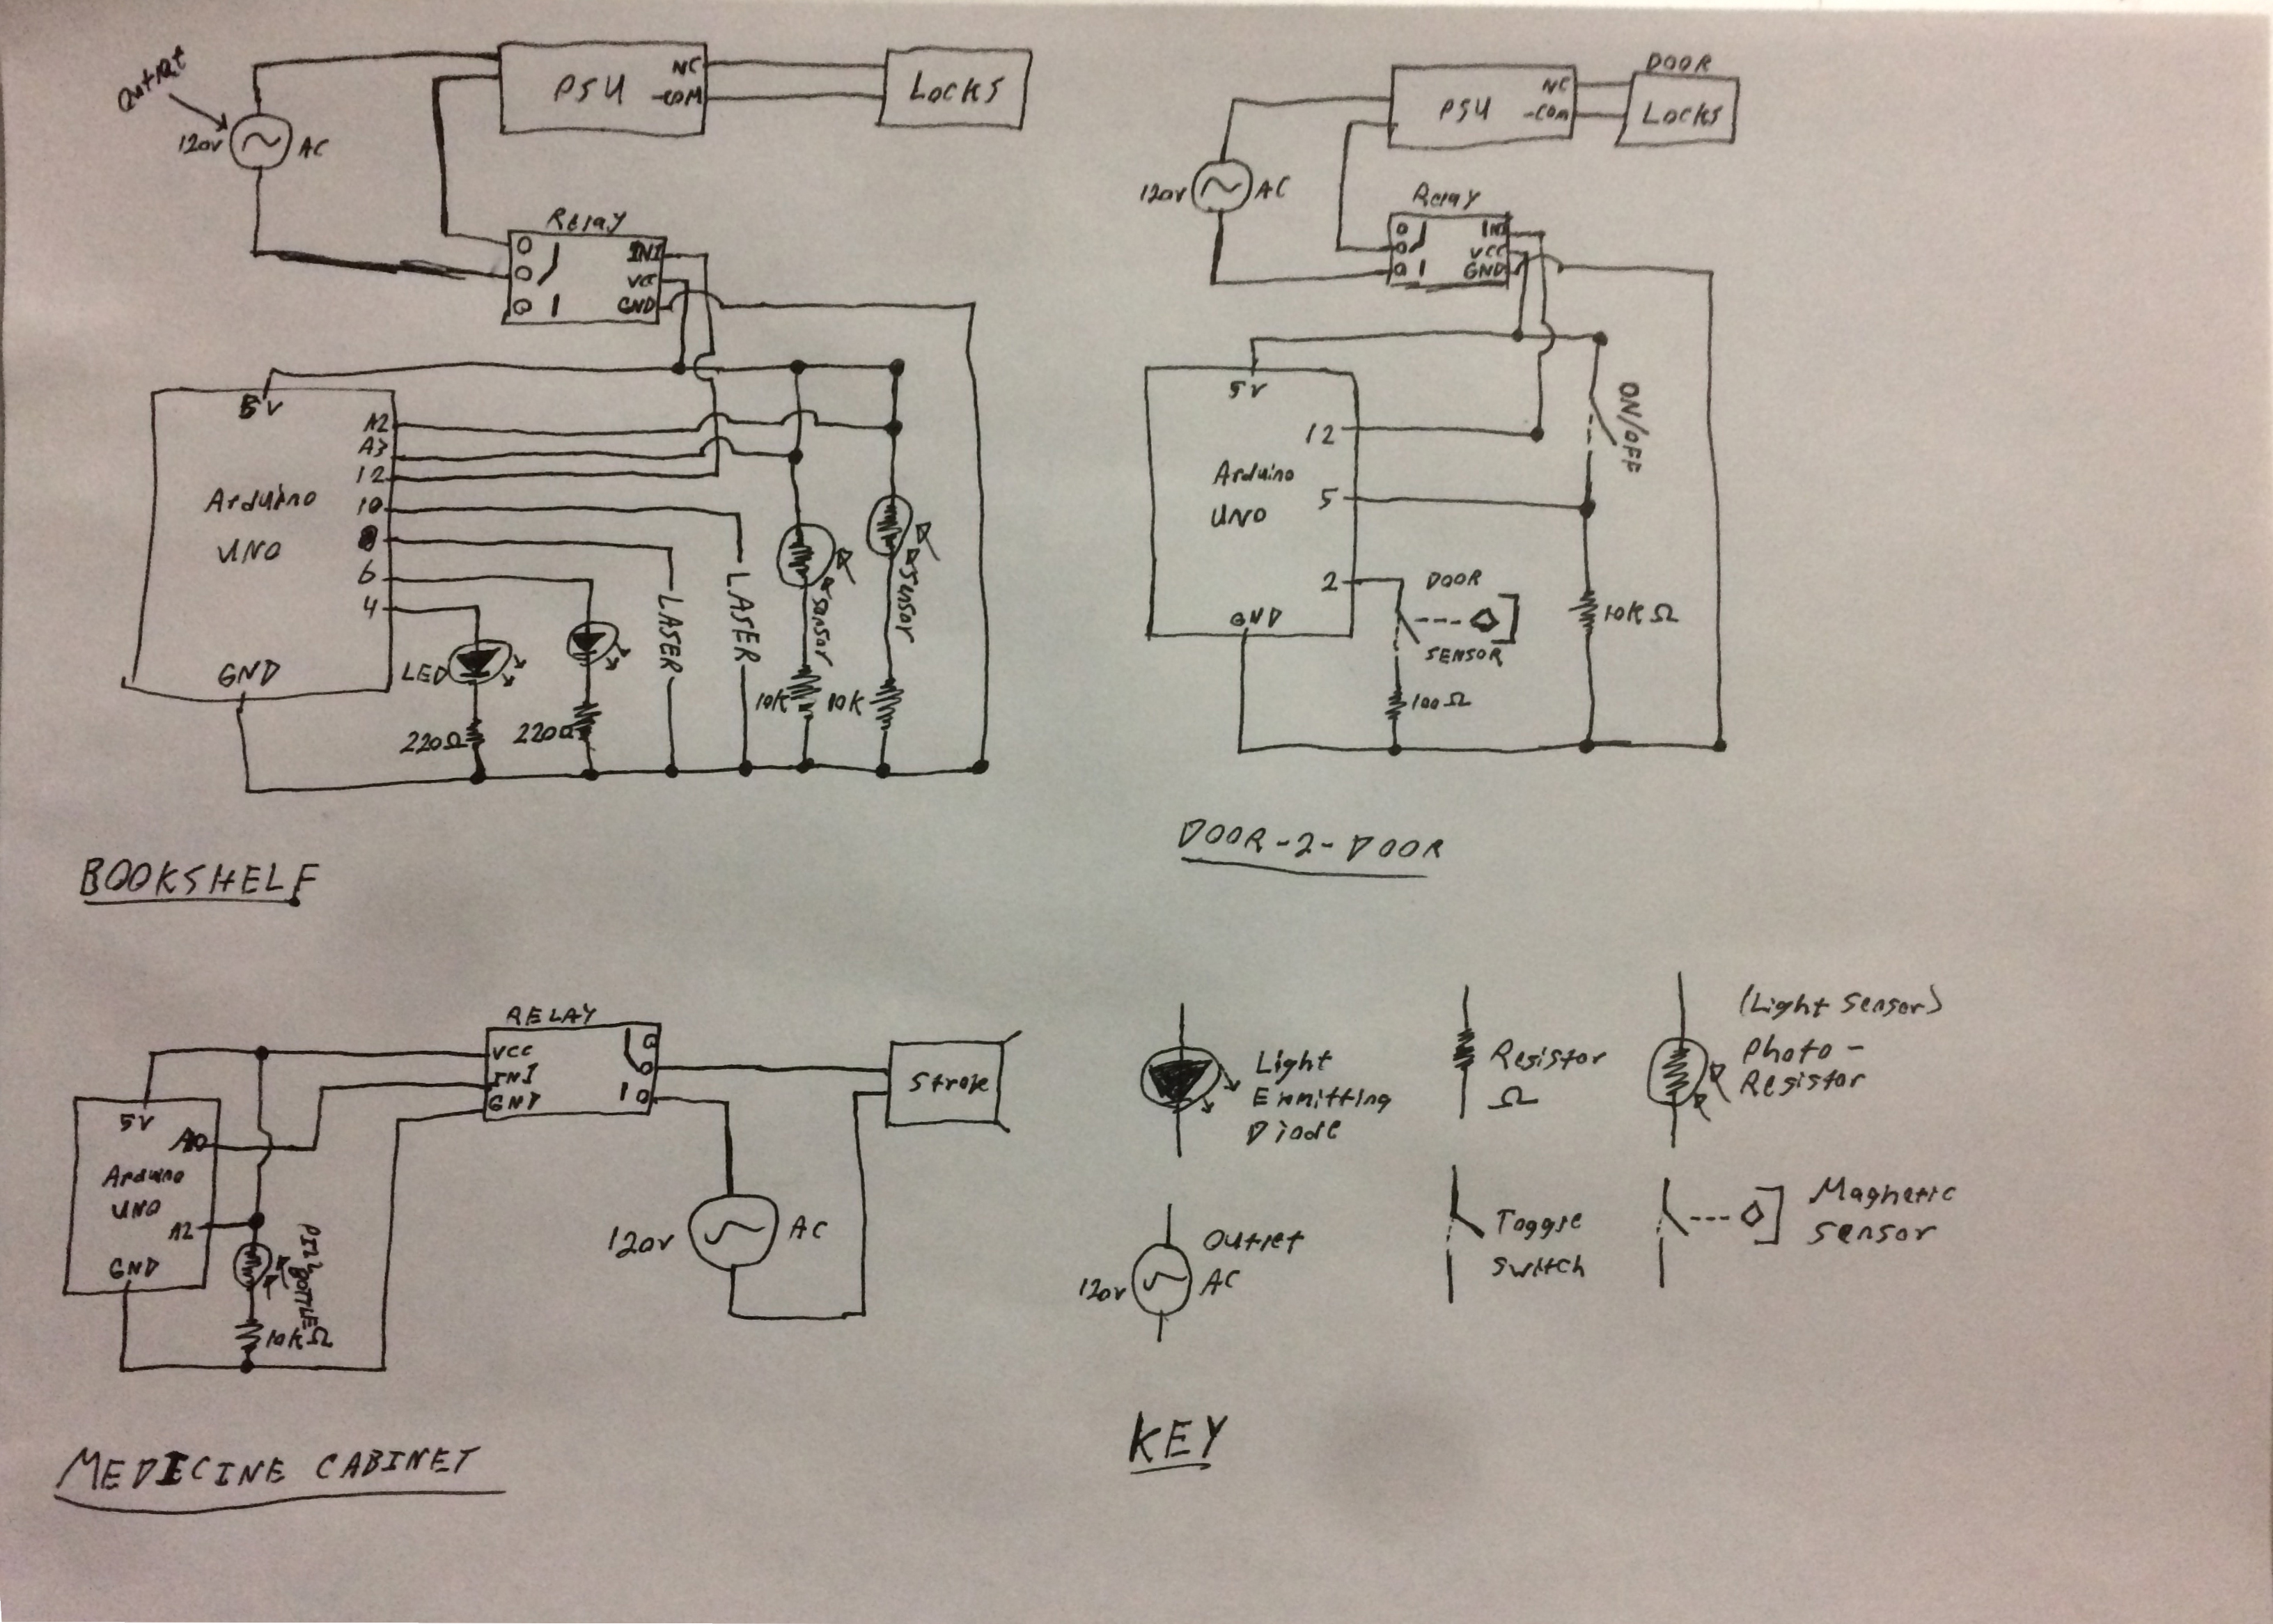 Outlet
120v
AC
PSU
NC
-COM
Locks
Relay
IN1
VCC
GND
5v
A2
A3
12
10
8
6
4
Arduino
UNO
GND
LED
220Ω
220Ω
LASER
LASER
sensor
sensor
10K
10K
BOOKSHELF
120v
AC
PSU
NC
-COM
DOOR
Locks
Relay
IN1
VCC
GND
5v
12
5
2
Arduino
UNO
GND
ON/OFF
DOOR
SENSOR
100Ω
10KΩ
DOOR-2-DOOR
RELAY
VCC
IN1
GND
5V
A0
Arduino
UNO
A2
GND
BOTTLE
10KΩ
120v
AC
MEDICINE CABINET
Light
Emmitting
Diode
Resistor
Ω
(Light Sensor)
Photo-
Resistor
120v
Outlet
AC
Toggle
Switch
Magnetic
Sensor
KEY